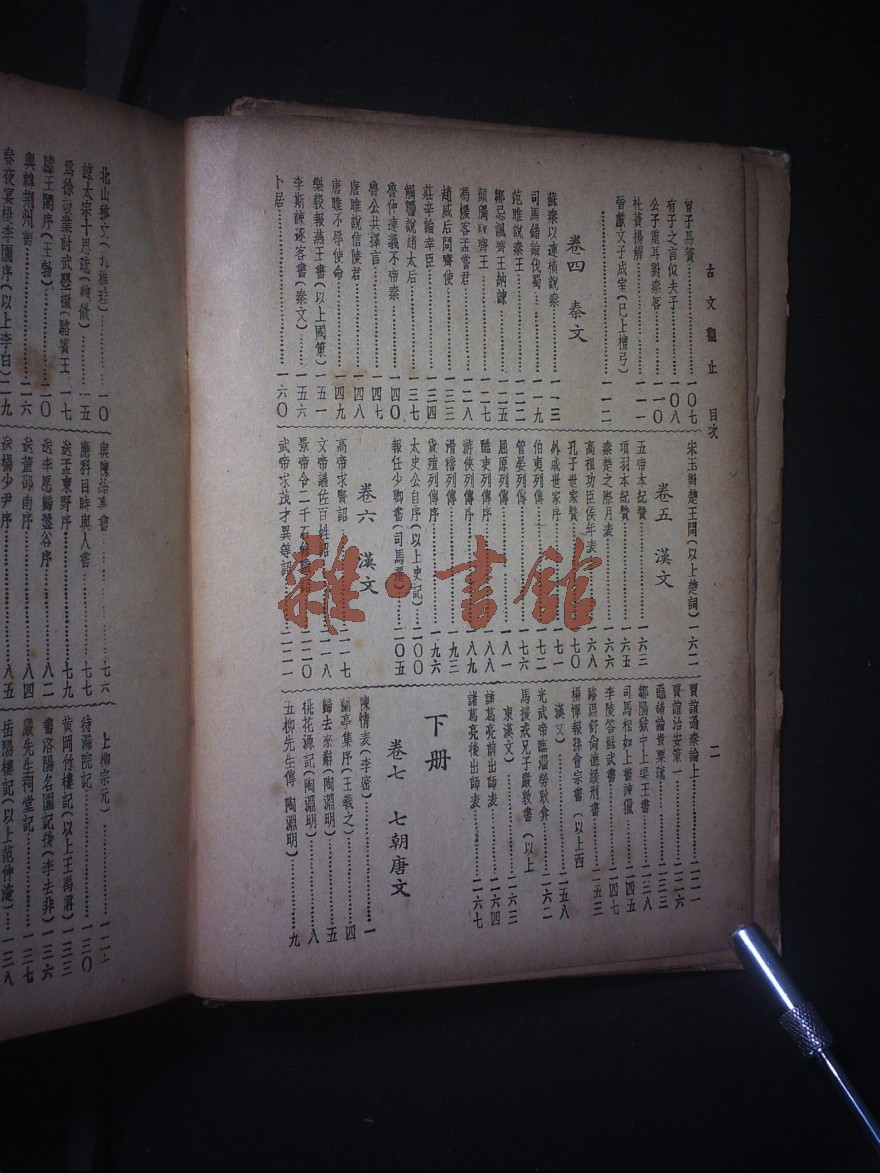 古文觀止 目次
二
曾子易簀一〇七
有子之言似夫子一〇八
公子重耳對秦客一一〇
杜蕢揚觶一一一
晉獻文子成室(已上檀弓)一一二
卷四 秦文
蘇秦以連橫說秦一一三
司馬錯論伐蜀一一九
范雎說秦王一二二
鄒忌諷齊王納諫一二五
顏斶說齊王一二七
馮煖客孟嘗君一二八
趙威后問齊使一三三
莊辛論幸臣一三四
觸讋說趙太后一三七
魯仲連義不帝秦一四〇
魯公共擇言一四七
唐雎說信陵君一四八
唐雎不辱使命一四九
樂毅報燕王書(以上國策)一五一
李斯諫逐客書(秦文)一五六
卜居一六〇
宋玉對楚王問(以上楚詞)一六二
卷五 漢文
五帝本紀贊一六三
項羽本紀贊一六五
秦楚之際月表一六六
高祖功臣侯年表一六八
孔子世家贊一七〇
外戚世家序一七一
伯夷列傳一七二
管晏列傳一七六
屈原列傳一八一
酷吏列傳序一八八
游俠列傳序一八九
滑稽列傳一九三
貨殖列傳序一九六
太史公自序(以上史記)二〇〇
報任少卿書(司馬遷)二〇五
卷六 漢文
高帝求賢詔二一七
文帝議佐百姓詔二一八
景帝令二千石二二〇
武帝求茂才異等詔二二一
賈誼過秦論上
賈誼治安策一二二六
鼂錯論貴粟疏二三三
鄒陽獄中上梁王書二三八
司馬相如上書諫獵二四五
李陵答蘇武書二四七
路溫舒尚德緩刑書二五三
楊惲報孫會宗書(以上西
漢文)二五八
光武帝臨淄勞耿弇二六二
馬援戒兄子嚴敦書(以上
東漢文)二六三
諸葛亮前出師表二六四
諸葛亮後出師表二六七
下册
卷七 七朝唐文
陳情表(李密)一
蘭亭集序(王羲之)四
歸去來辭(陶淵明)五
桃花源記(陶淵明)八
五柳先生傳(陶淵明)九
北山移文(孔稚珪)一〇
諫太宗十思疏(魏徵)一五
爲徐敬業討武曌檄(駱賓王一七
滕王閣序(王勃)二〇
與韓荆州書二六
春夜宴桃李園序(以上李白)二九
與陳給事書七六
應科目時與人書七七
送孟東野序七九
送李愿歸盤谷序八二
送董邵南序八四
送楊少尹序八五
上柳宗元)
待漏院記一三〇
黃岡竹樓記(以上王禹偁)一三三
書洛陽名園記後(李去非)一三六
嚴先生祠堂記一三七
岳陽樓記(以上范仲淹)一三八
雜·書館